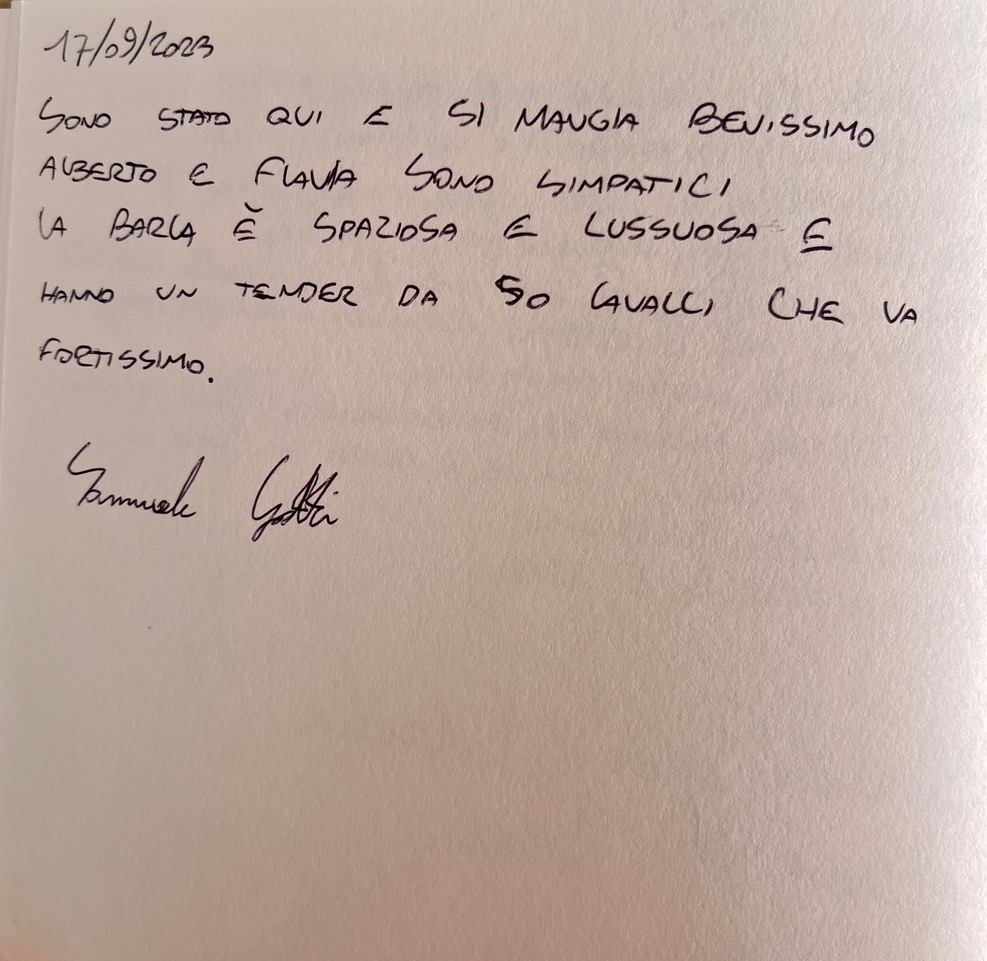 17/09/2023
SONO STATO QUI E SI MANGIA BENISSIMO
ALBERTO E FLAVIA SONO SIMPATICI
LA BARCA È SPAZIOSA E LUSSUOSA E
HANNO UN TENDER DA 50 CAVALLI CHE VA
FORTISSIMO.
Samuele